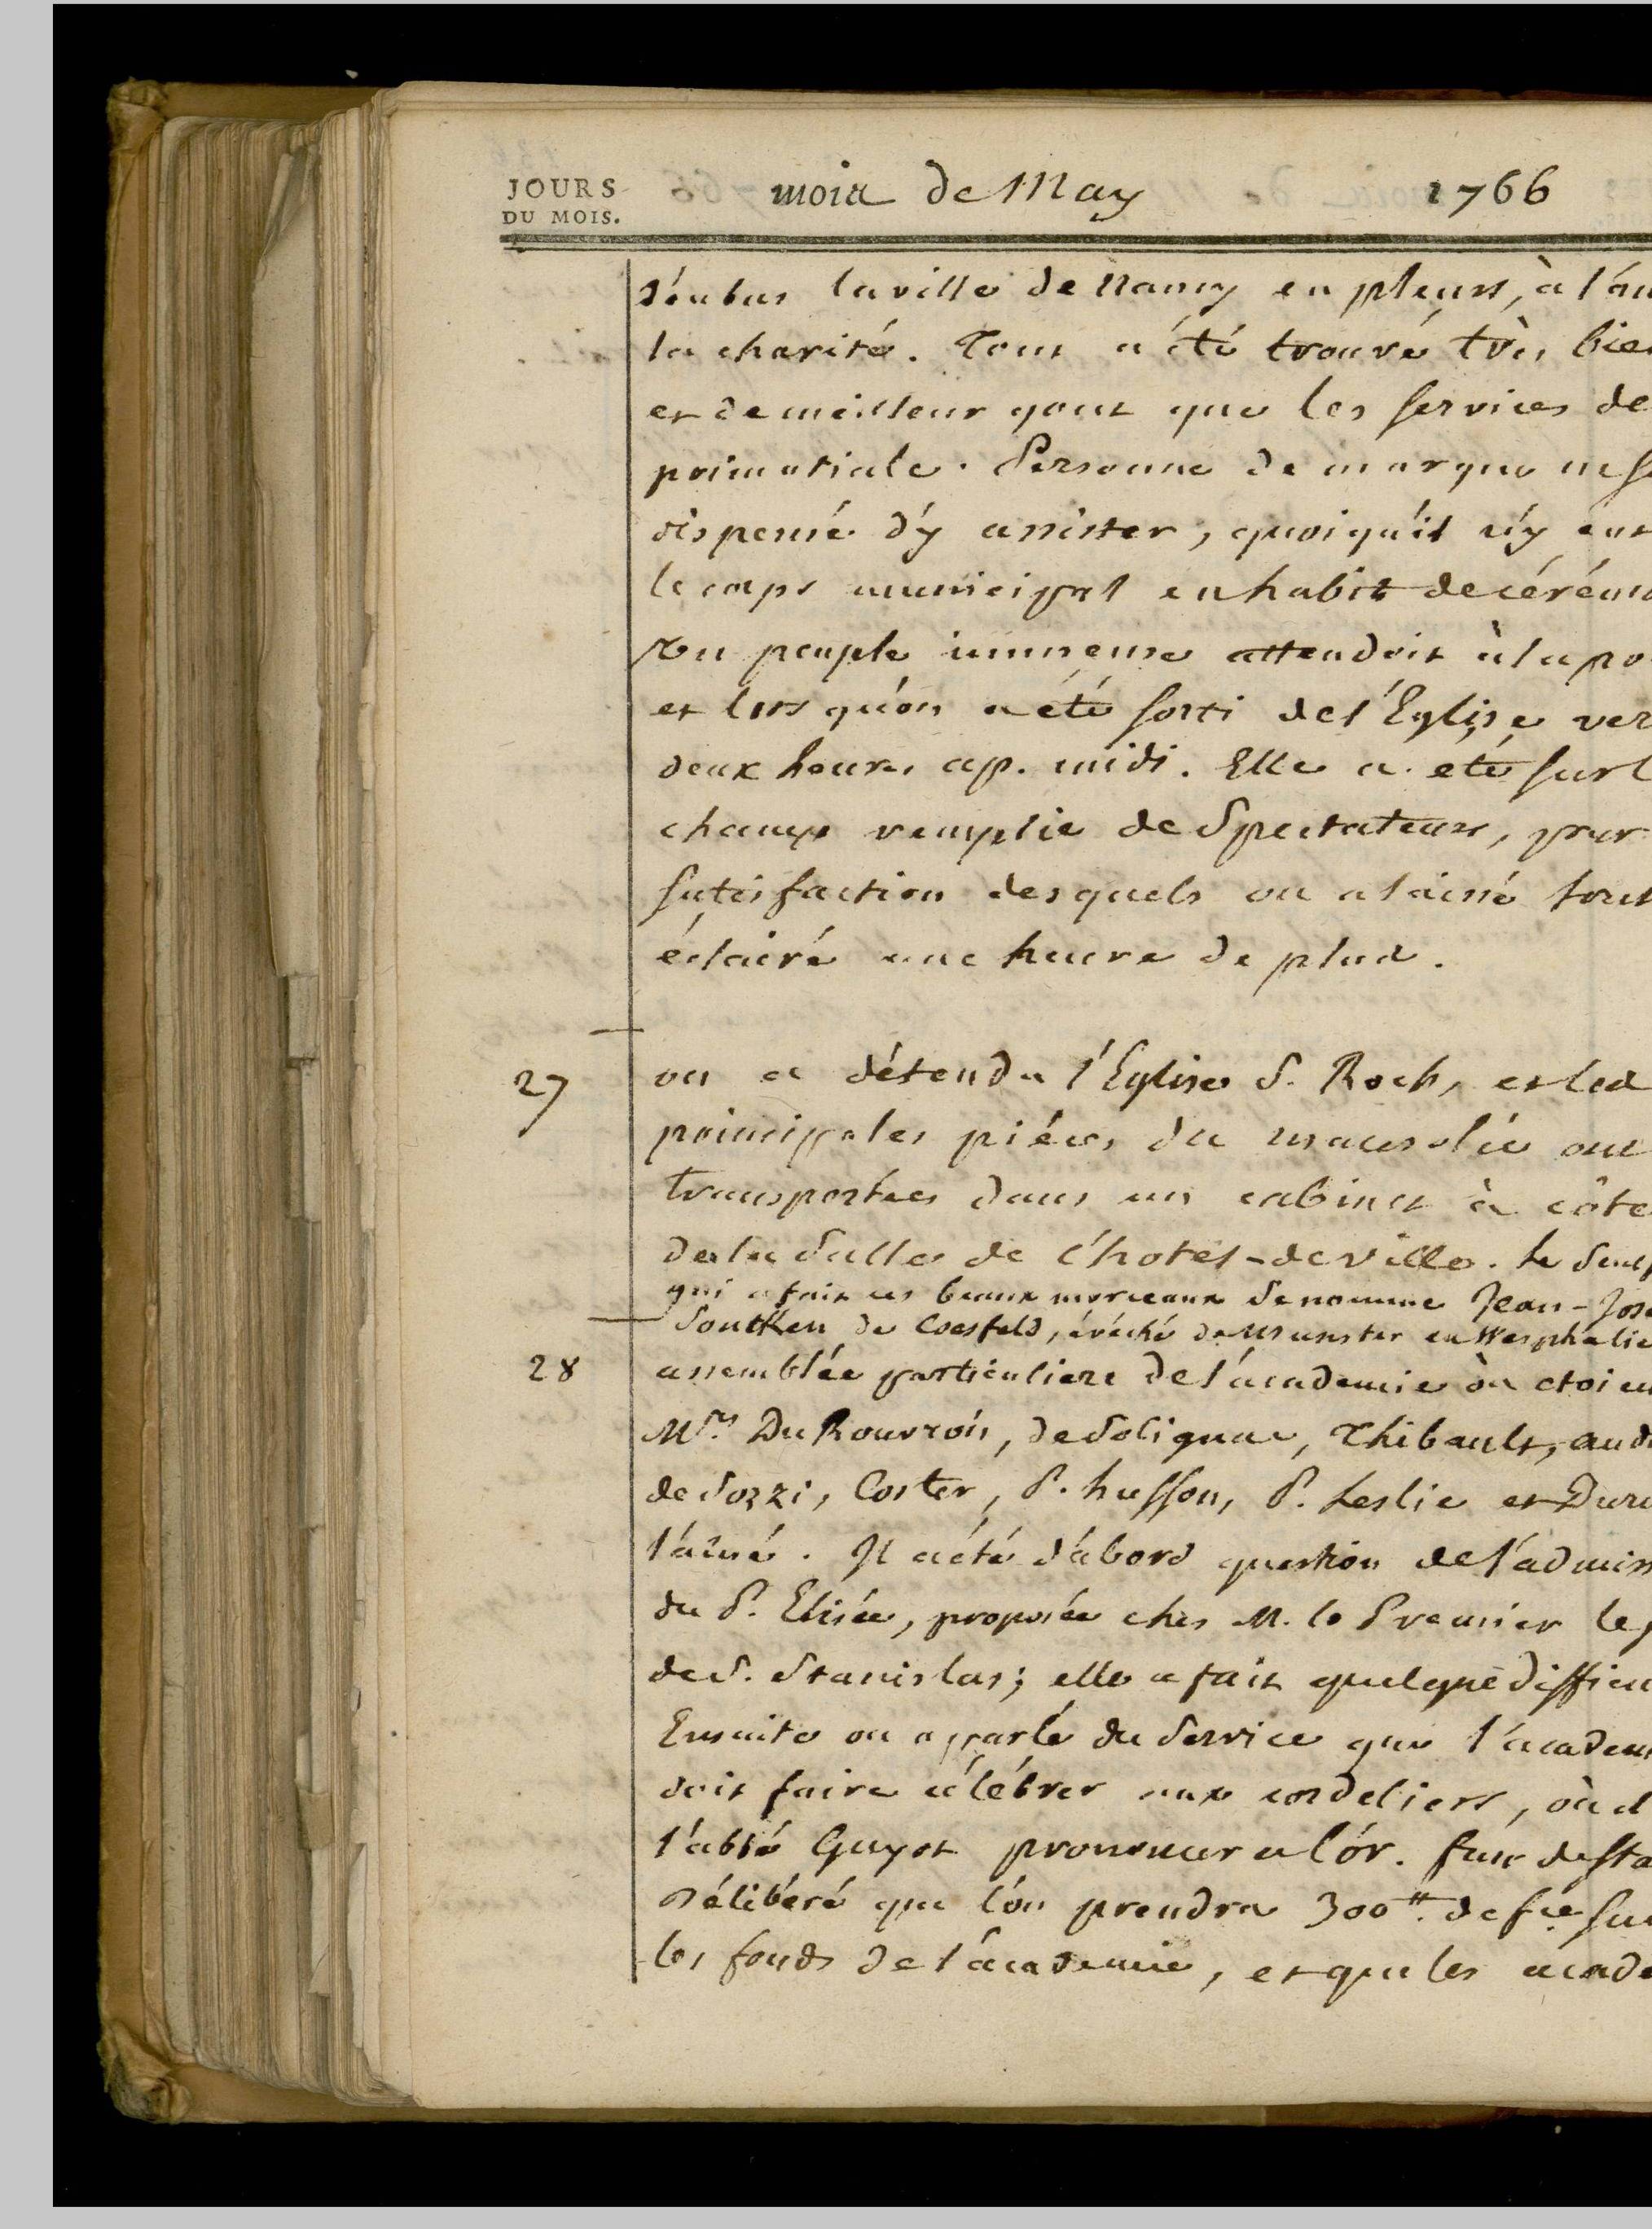 JOURS
DU MOIS.
mois de May 1766
d'en bas la ville de Nancy en pleurs, à l'au
la charité. Tout a été trouvé très bien
et de meilleur gout que les services de
primatiale. Personne de marque ne s'e
dispensé d'y assister, quoiqu'il n'y eut
le corps municipal en habit de cérémo
Un peuple immense attendoit à la po
et lors qu'on a été sorti de l'Eglise ver
deux heures ap. midi. Elle a été sur l
champ remplie de Spectateurs, pour
satisfaction desquels on a laissé tout
éclairé une heure de plus.
27 on a détendu l'Eglise S. Roch, et les
principales pièces du mausolée ont
transportées dans un cabinet à côté
de la Salle de l'hotel-de ville. le Sculp
qui a fait ces beaux morceaux se nomme Jean-Jose
Sontken de Coesfeld, évêché de Munster en Wesphalie
28 assemblée particuliere de l'académie où etoien
Mrs. Du Rouvrois, de Solignac, Thibault, andr
de Sozzi, Coster, P. husson, P. Leslie et Duri
l'aîné. Il a été d'abord question de l'admiss
du P. Elisée, proposée chez M. le Premier le j
de S. Stanislas; elle a fait quelque difficu
Ensuite on a parlé du Service que l'academ
doit faire célébrer aux cordeliers, où d
l'abbé Guyot prononcera l'or. fun. de Sta
Délibéré que l'on prendra 300tt. de fce sur
les fonds de l'academie, et que les acade